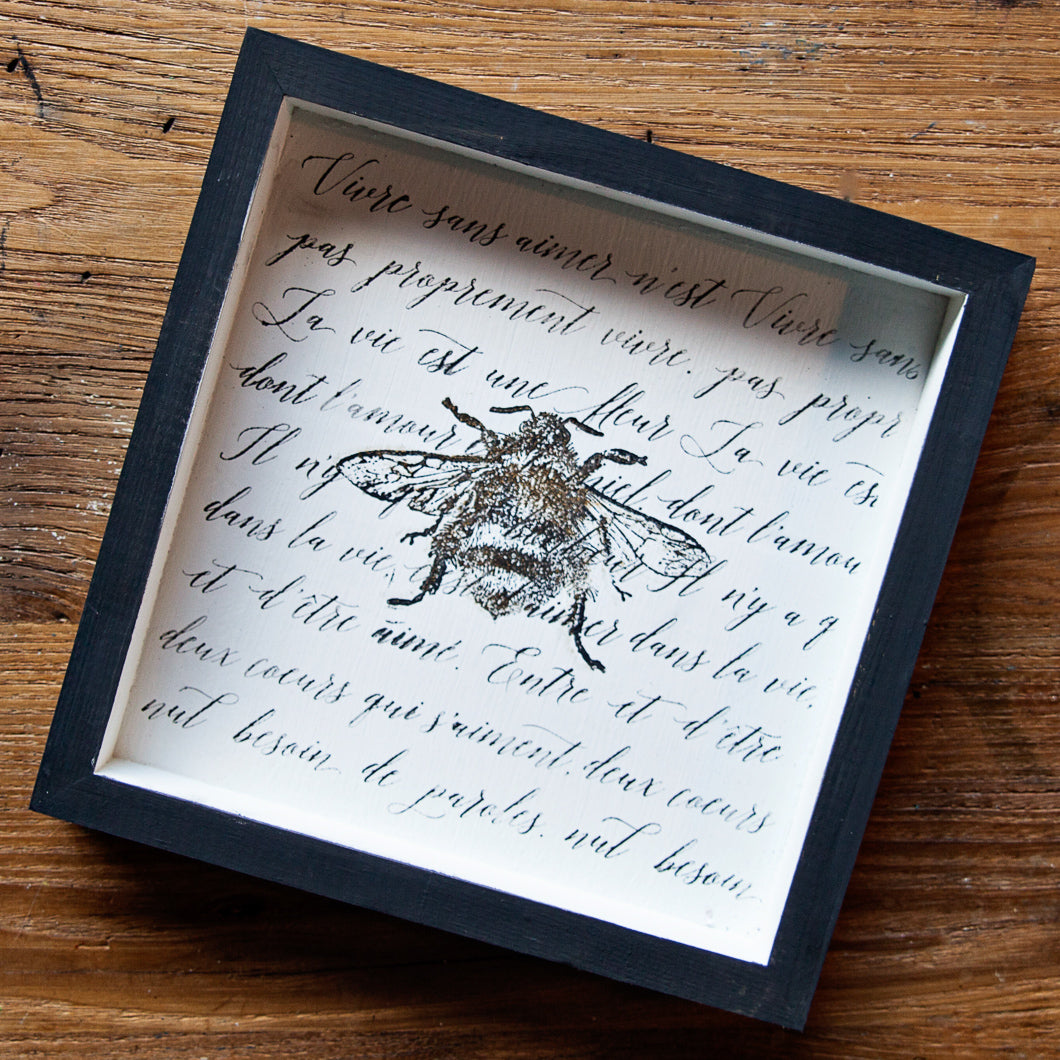 Vivre sans aimer n'est Vivre sans
pas proprement vivre. pas propr
La vie est une fleur La vie es
dont l'amour miel dont l'amou
Il n'y Il n'y a q
dans la vie aimer dans la vie,
et d'être aimé. Entre et d'être
deux coeurs qui s'aiment, deux coeurs
nul besoin de paroles. nul besoin